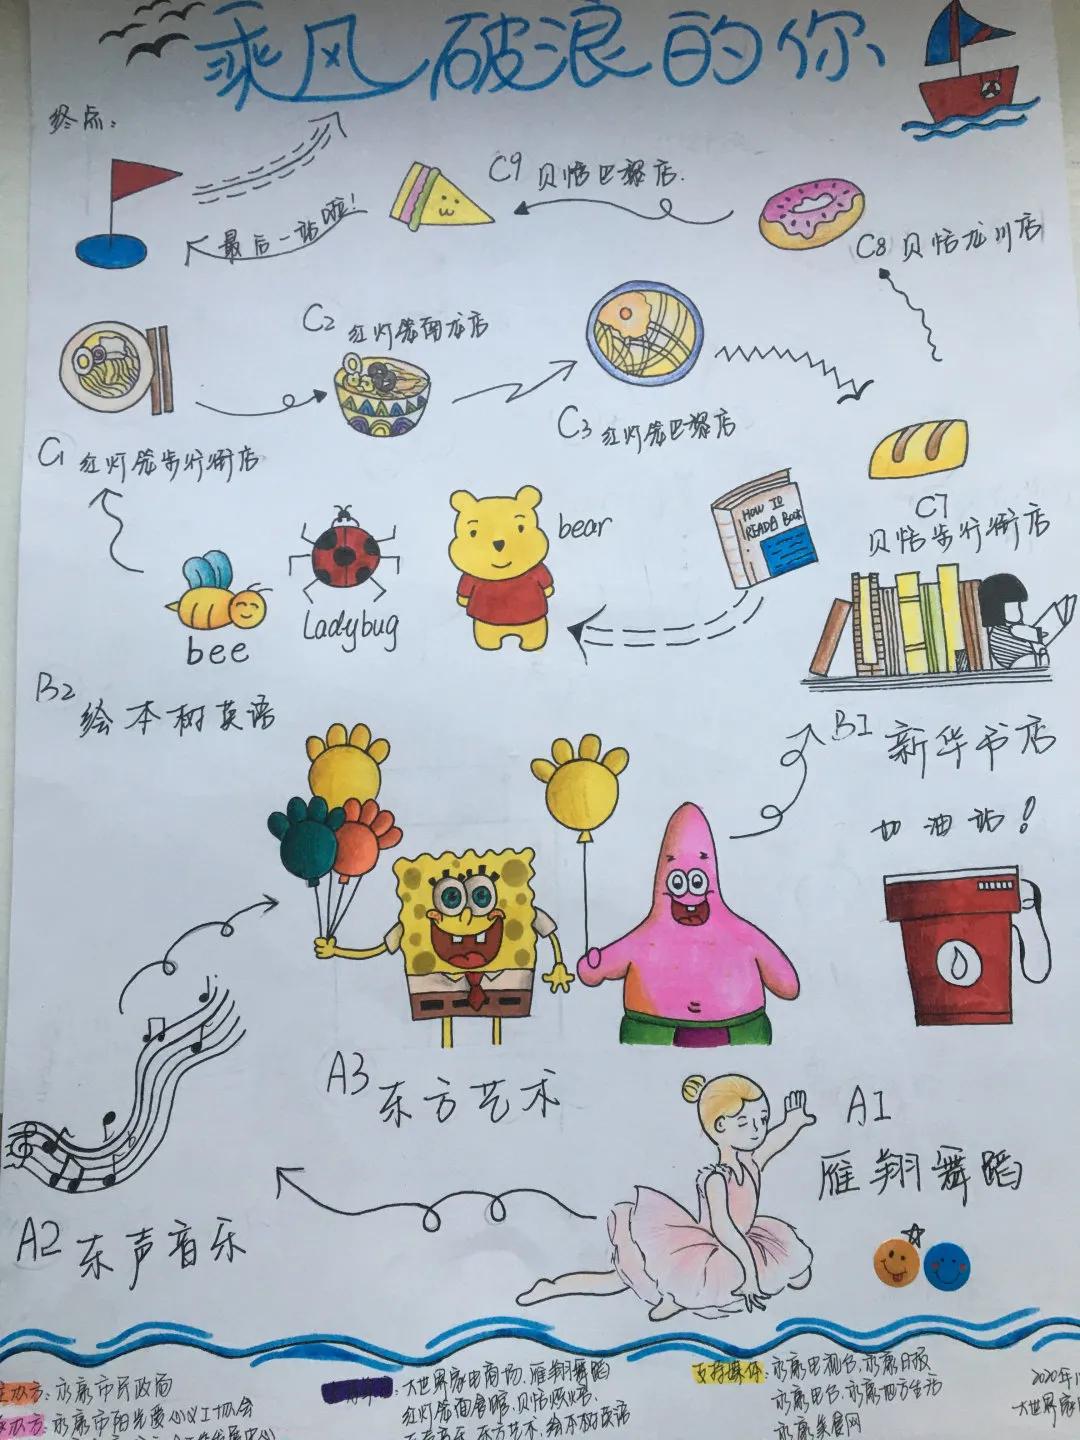 乘风破浪的你
终点:
C9 贝恬巴黎店.
最后一站啦!
C8 贝恬龙川店
C2 红灯笼面龙店
C3 红灯笼巴黎店
C1 红灯笼步行街店
C7
贝恬步行街店
HOW TO
READ A BOOK
bear
Ladybug
bee
B2
绘本树英语
B1 新华书店
加油站!
A3 东方艺术
A1
雁翔舞蹈
A2 东声音乐
主办方: 永康市民政局
承办方: 永康市阳光爱心义工协会
大世界家电商场、雁翔舞蹈
红灯笼面食馆、贝恬烘焙、
东声音乐、东方艺术、绘本树英语
支持媒体: 永康电视台、永康日报
永康电台、永康四方生活
永康美食网
2020年1
大世界家